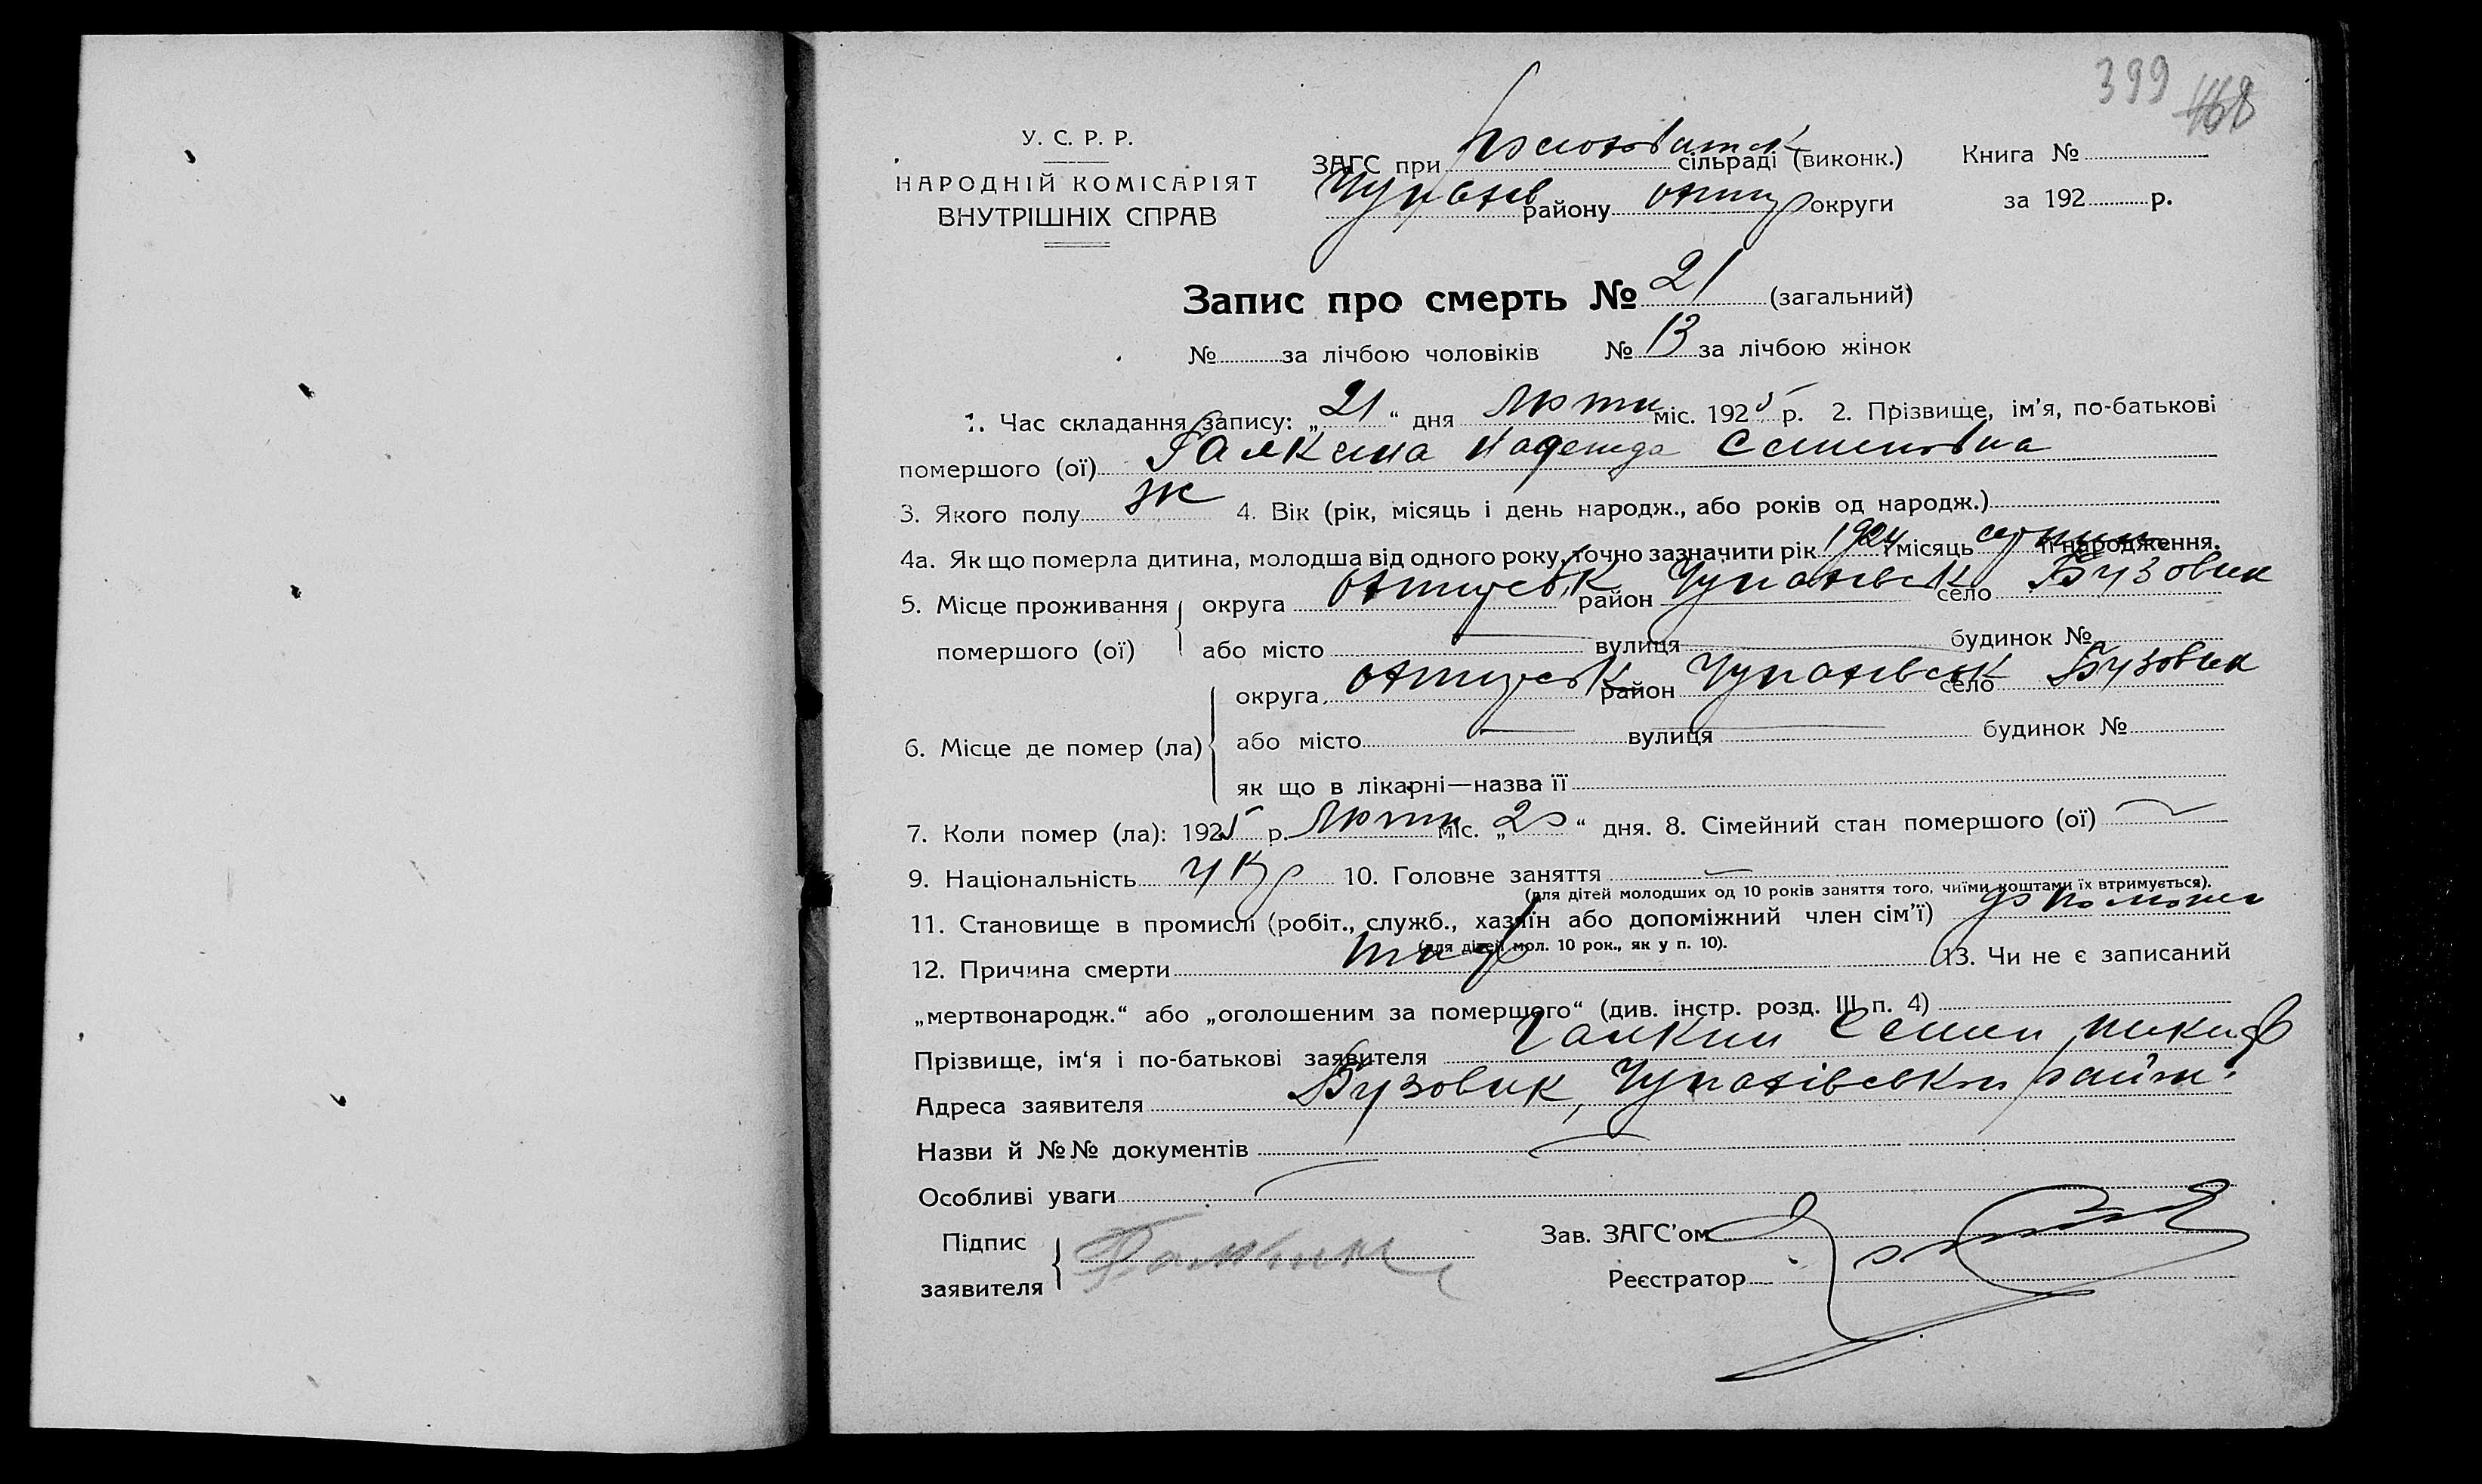 399 168
У. С. Р. Р.
НАРОДНІЙ КОМІСАРІЯТ
ВНУТРІШНІХ СПРАВ
ЗАГС при сільраді (виконк.) Книга №
Чупахів району Охтир округи за 192 р.
Запис про смерть № 21 (загальний)
№ за лічбою чоловіків № 13 за лічбою жінок
1. Час складання запису: „21“ дня Лютня міс. 1925 р. 2. Прізвище, ім'я, по-батькові
помершого (ої) Галкина Надежда Семеновна
3. Якого полу ж 4. Вік (рік, місяць і день народж., або років од народж.)
4а. Як що померла дитина, молодша від одного року, точно зазначити рік 1924 і місяць її народження.
5. Місце проживання помершого (ої) округа Охтирськ район Чупахівськ село Бузовик
або місто — вулиця — будинок №
6. Місце де помер (ла) округа Охтирськ район Чупахівськ село Бузовик
або місто — вулиця — будинок №
як що в лікарні—назва її
7. Коли помер (ла): 1925 р. Лютня міс. „20“ дня. 8. Сімейний стан помершого (ої) —
9. Національність укр 10. Головне заняття —
(для дітей молодших од 10 років заняття того, чиїми коштами їх втримується).
11. Становище в промислі (робіт., служб., хазяїн або допоміжний член сім'ї)
(для дітей мол. 10 рок., як у п. 10).
12. Причина смерти тиф 13. Чи не є записаний
„мертвонародж.“ або „оголошеним за помершого“ (див. інстр. розд. III п. 4)
Прізвище, ім'я і по-батькові заявителя Галкин Семен Никиф
Адреса заявителя Бузовик, Чупахівськ район
Назви й №№ документів —
Особливі уваги —
Підпис заявителя Галкин
Зав. ЗАГС'ом
Реєстратор